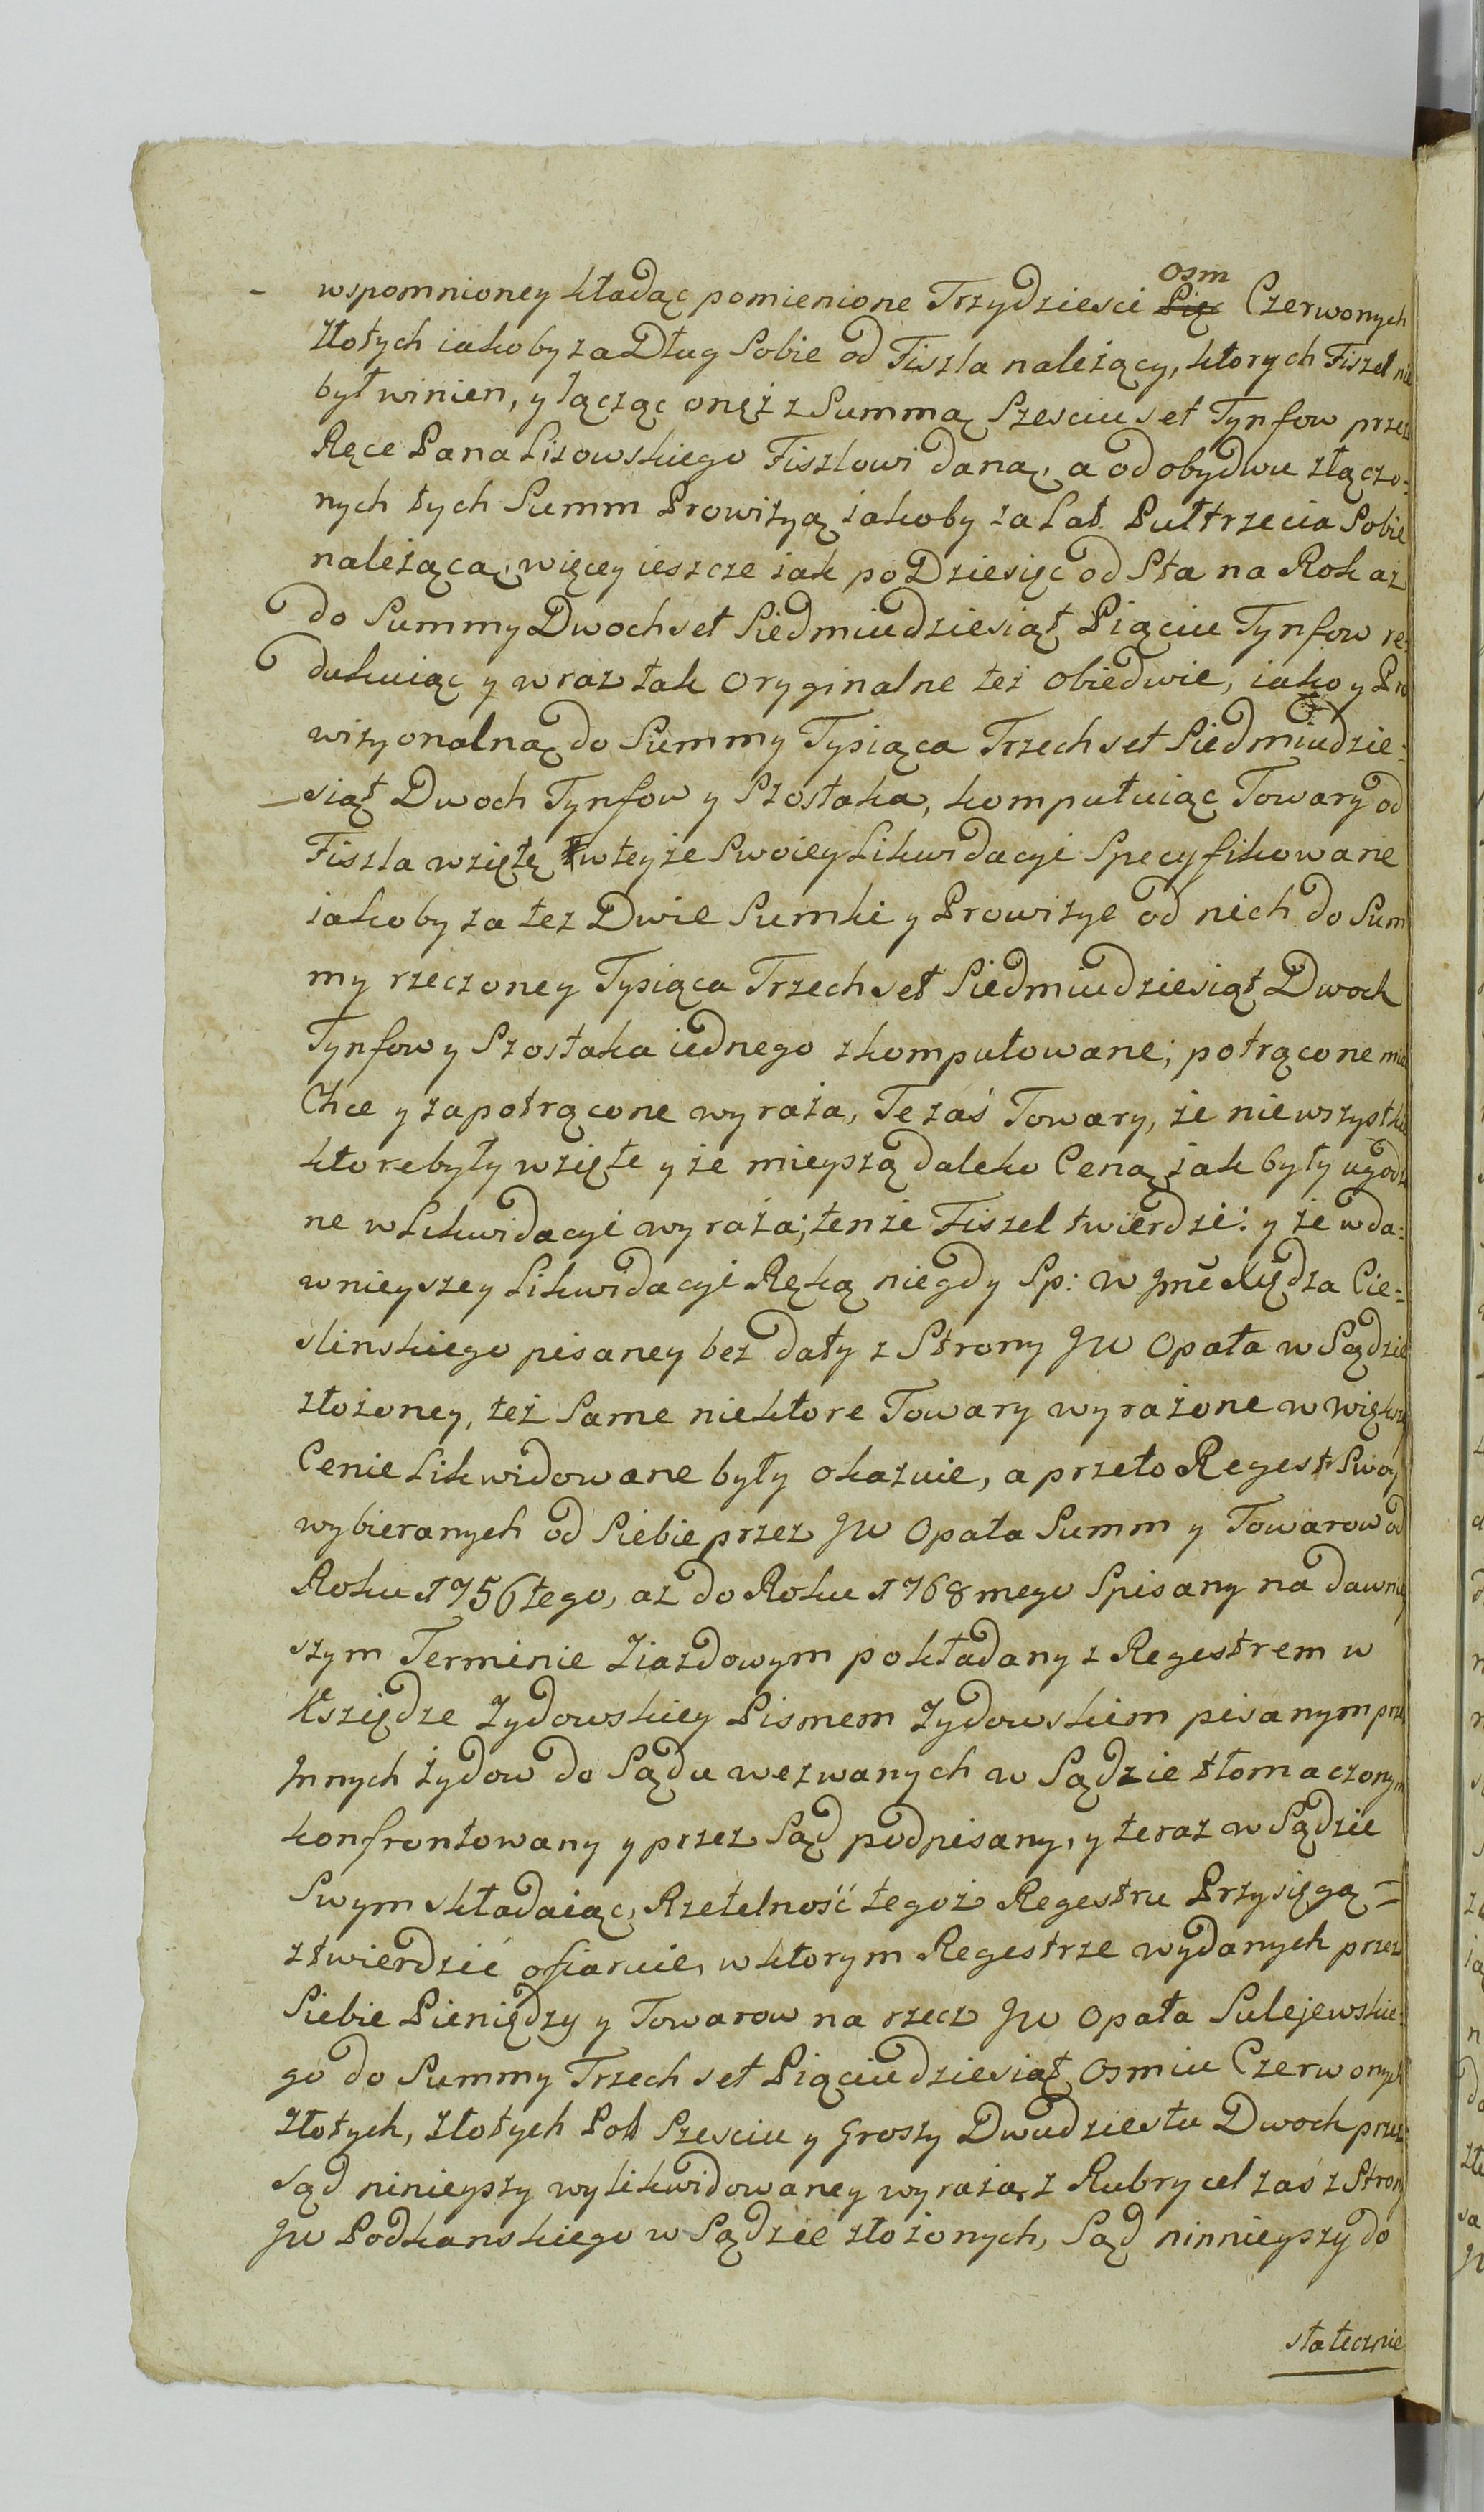 wspomnioney kładąc pomienione Trzydziesci Osm Czerwonych
Złotych iakoby za Dług Sobie od Fiszla należący, ktorych Fiszel nie
był winien, y łącząc onęż z Summą Szesciuset Tynfow przez
Ręce Pana Lisowskiego Fiszlowi daną, a od obydwu złączo:
nych tych Summ Prowizyą iakoby za Lat Pułtrzecia Sobie
należącą, więcey ieszcze iak po Dziesięc od Sta na Rok aż
do Summy Dwochset Siedmiudziesiąt Piąciu Tynfow re:
dukuiąc y wraz tak oryginalne też obiedwie, iako y Pro
wizyonalną do Summy Tysiąca Trzechset Siedmiudzie:
siąt Dwoch Tynfow y Szostaka, komputuiąc Towary od
Fiszla wzięte w teyże Swoiey Likwidacyi Specyfikowane
iakoby za tez Dwie Sumki y Prowizye od nich do Sum
my rzeczoney Tysiąca Trzechset Siedmiudziesiąt Dwoch
Tynfow y Szostaka iednego zkomputowane; potrącone mie
Chce y za potrącone wyraża, Te zaś Towary, że niewszystkie
ktore były wzięte y że mieyszą daleko Ceną iak były ugodzo
ne w Likwidacyi wyraża; tenże Fiszel twierdzi: y że w da:
wnieyszey Likwidacyi Ręką niegdy Sp: W Jmć Xiędza Cie:
slinskiego pisaney bez daty z Strony JW Opata w Sądzie
złożoney, też Same niektore Towary wyrażone w większey
Cenie Likwidowane były okazuie, a przeto Regestr Swoy
wybieranych od Siebie przez JW Opata Summ y Towarow od
Roku 1756tego, aż do Roku 1768mego Spisany na dawniey
szym Terminie Ziazdowym pokładany z Regestrem w
Xsziędze Zydowskiey Pismem Zydowskiem pisanym przez
Jnnych żydow do Sądu wezwanych w Sądzie tłomaczonym
konfrontowany y przez Sąd podpisany, y teraz w Sądzie
Swym składaiąc, Rzetelność tegoż Regestru Przysięgą =
ztwierdzić ofiaruie, w ktorym Regestrze wydanych przez
Siebie Pieniędzy y Towarow na rzecz JW Opata Sulejewskie:
go do Summy Trzechset Piąciudziesiąt Osmiu Czerwonych
Złotych, Złotych Pol Szesciu y Groszy Dwudziestu Dwoch przez
Sąd ninieyszy wylikwidowaney wyraża, z Rubrycel zaś z Strony
JW Podkanskiego w Sądzie złożonych, Sąd ninnieyszy do
statecznie